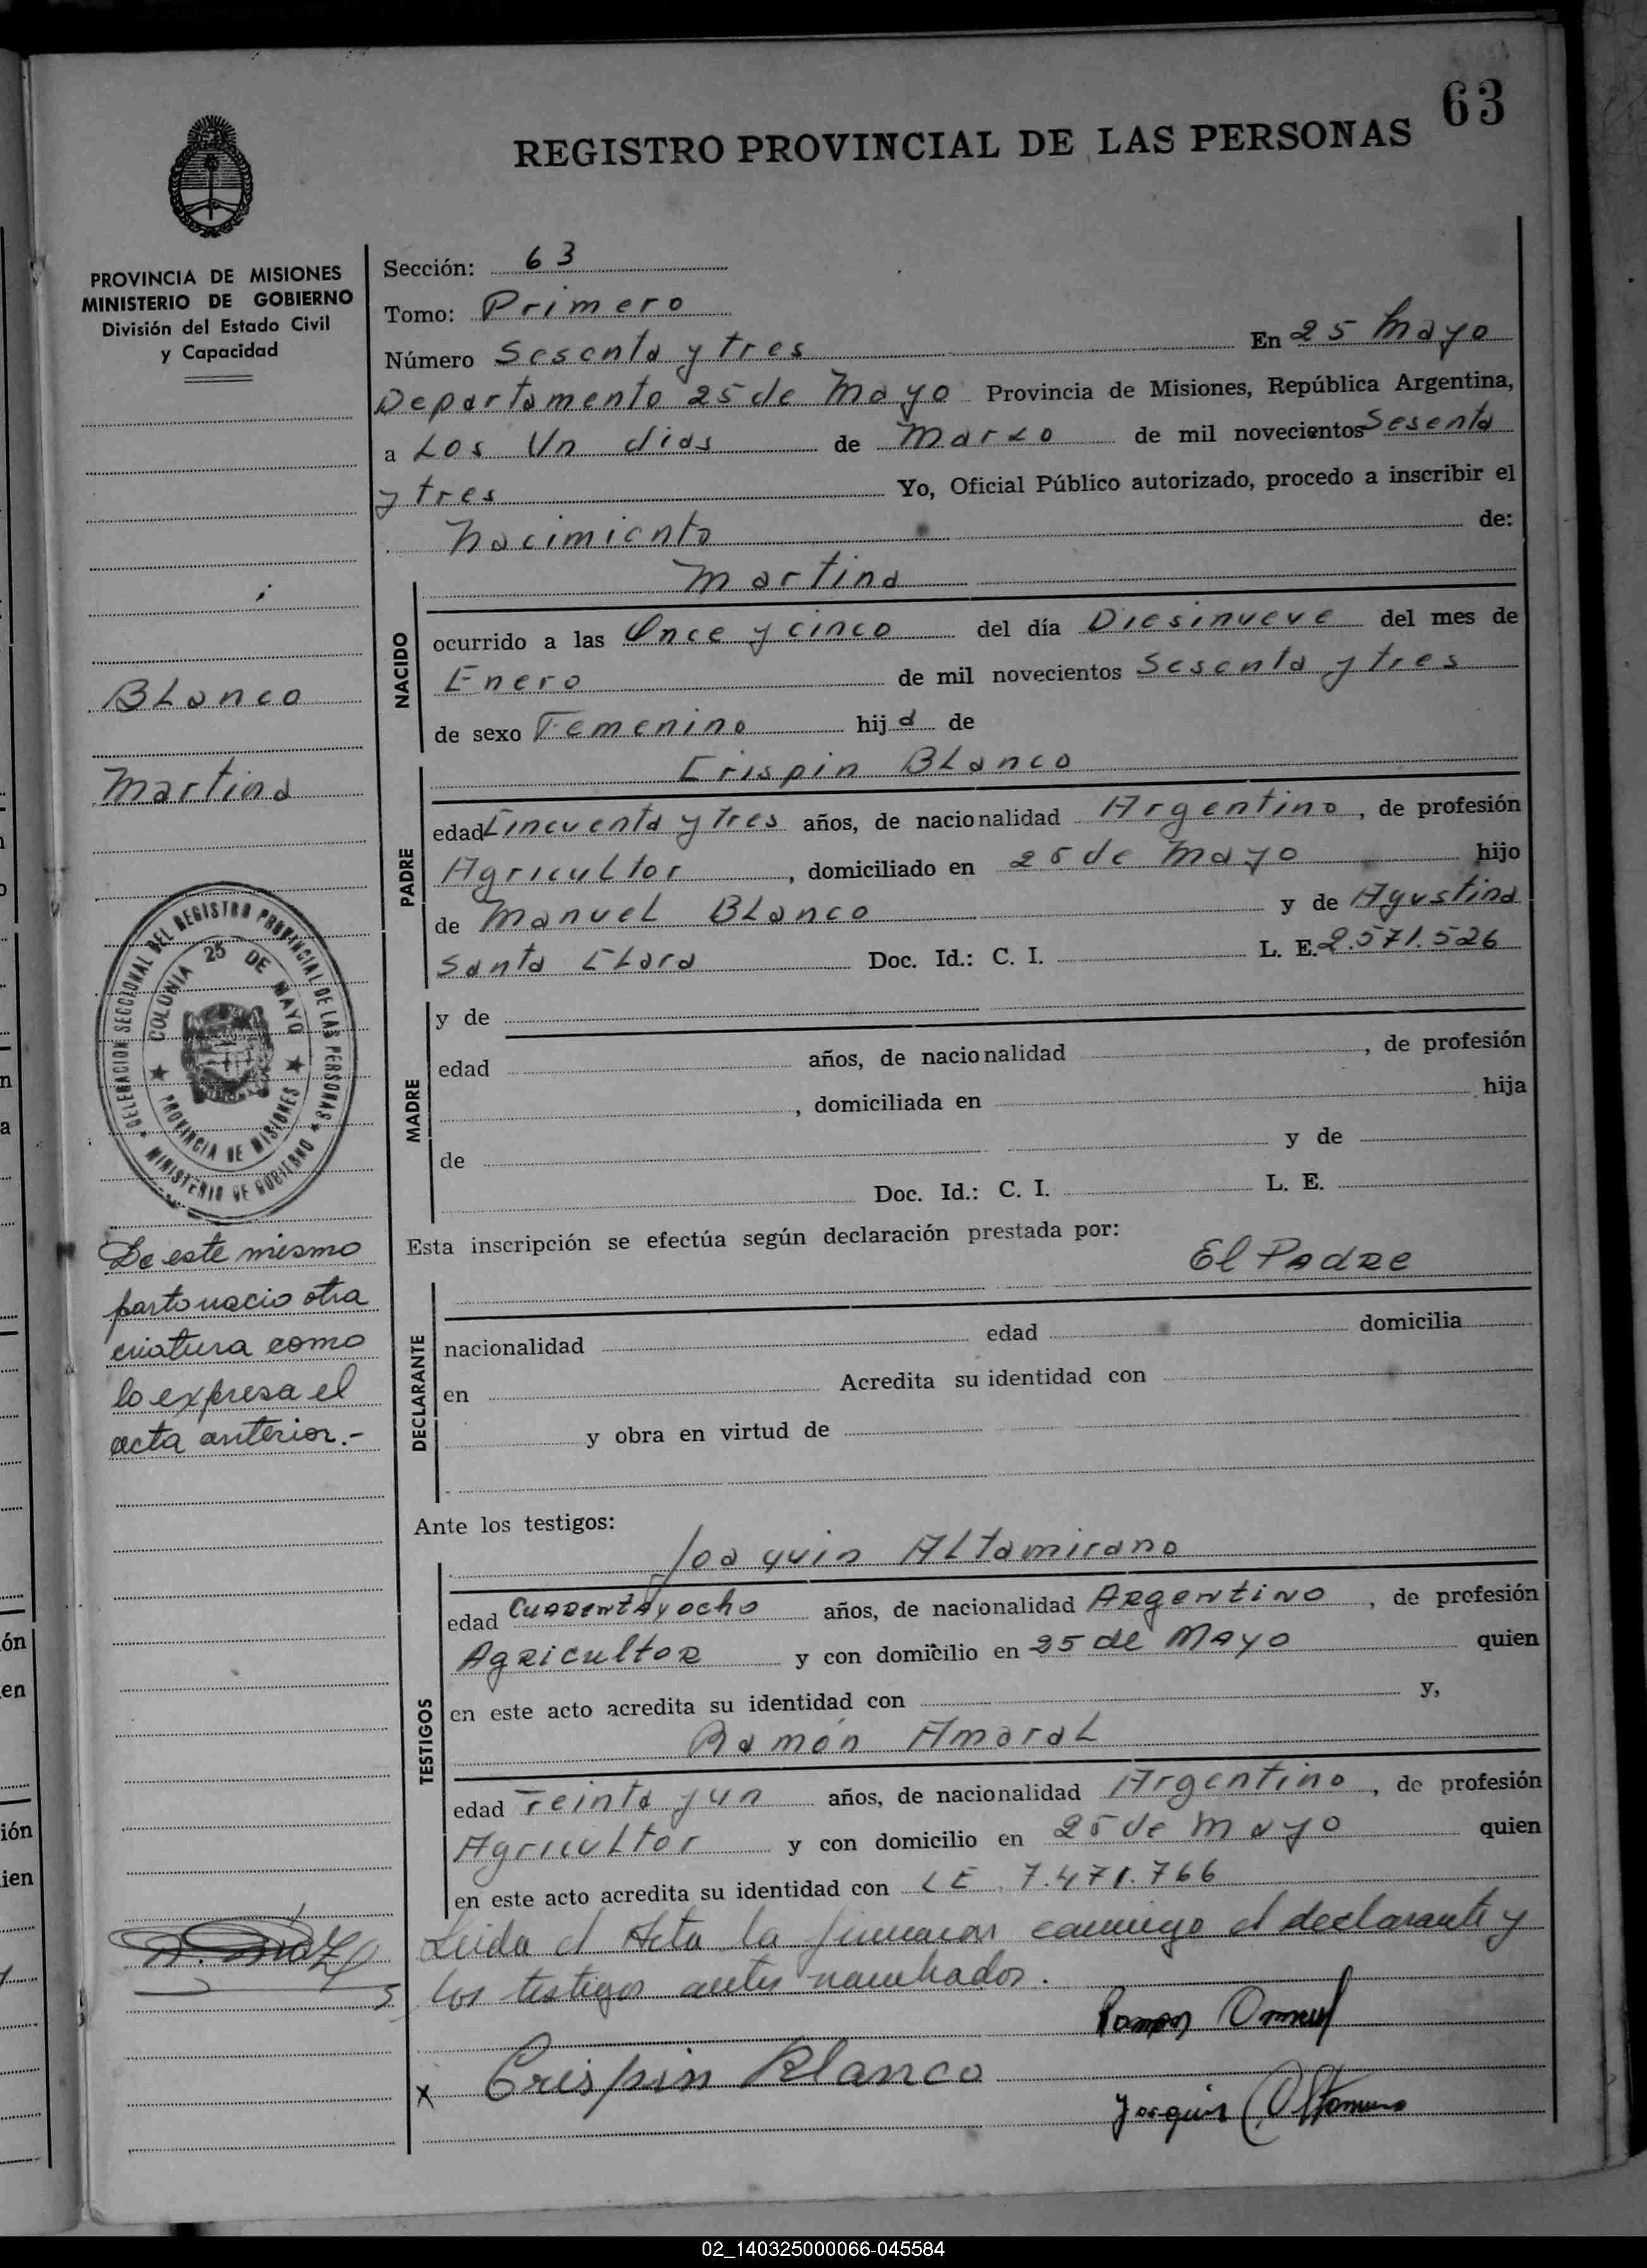 63
REGISTRO PROVINCIAL DE LAS PERSONAS
PROVINCIA DE MISIONES
MINISTERIO DE GOBIERNO
División del Estado Civil
y Capacidad
Sección: 63
Tomo: Primero
Número Sesenta y tres En 25 Mayo
Departamento 25 de Mayo Provincia de Misiones, República Argentina,
a Los Un dias de Marzo de mil novecientos Sesenta
y tres Yo, Oficial Público autorizado, procedo a inscribir el
Nacimiento de:
Martina
NACIDO
ocurrido a las Once y cinco del día Diesinueve del mes de
Enero de mil novecientos Sesenta y tres
de sexo Femenino hija de
Blanco
Martina
Crispin Blanco
PADRE
edad Cincuenta y tres años, de nacionalidad Argentino, de profesión
Agricultor, domiciliado en 25 de Mayo hijo
de Manuel Blanco y de Agustina
Santa Clara Doc. Id.: C. I. L. E. 2.571.526
DELEGACION SECCIONAL DEL REGISTRO PROVINCIAL DE LAS PERSONAS
COLONIA 25 DE MAYO
PROVINCIA DE MISIONES
MINISTERIO DE GOBIERNO
MADRE
y de
edad años, de nacionalidad , de profesión
, domiciliada en hija
de y de
Doc. Id.: C. I. L. E.
Esta inscripción se efectúa según declaración prestada por:
El Padre
De este mismo
parto nacio otra
criatura como
lo expresa el
acta anterior.-
DECLARANTE
nacionalidad edad domicilia
en Acredita su identidad con
y obra en virtud de
Ante los testigos:
Joaquin Altamirano
TESTIGOS
edad Cuarenta y ocho años, de nacionalidad Argentino, de profesión
Agricultor y con domicilio en 25 de Mayo quien
en este acto acredita su identidad con y,
Ramón Amaral
edad Treinta y un años, de nacionalidad Argentino, de profesión
Agricultor y con domicilio en 25 de Mayo quien
en este acto acredita su identidad con LE 7.471.766
Leida el Acta la firmaron conmigo el declarante y
los testigos antes nombrados.
Ramon
x Crispin Blanco
Joaquin
02_140325000066-045584